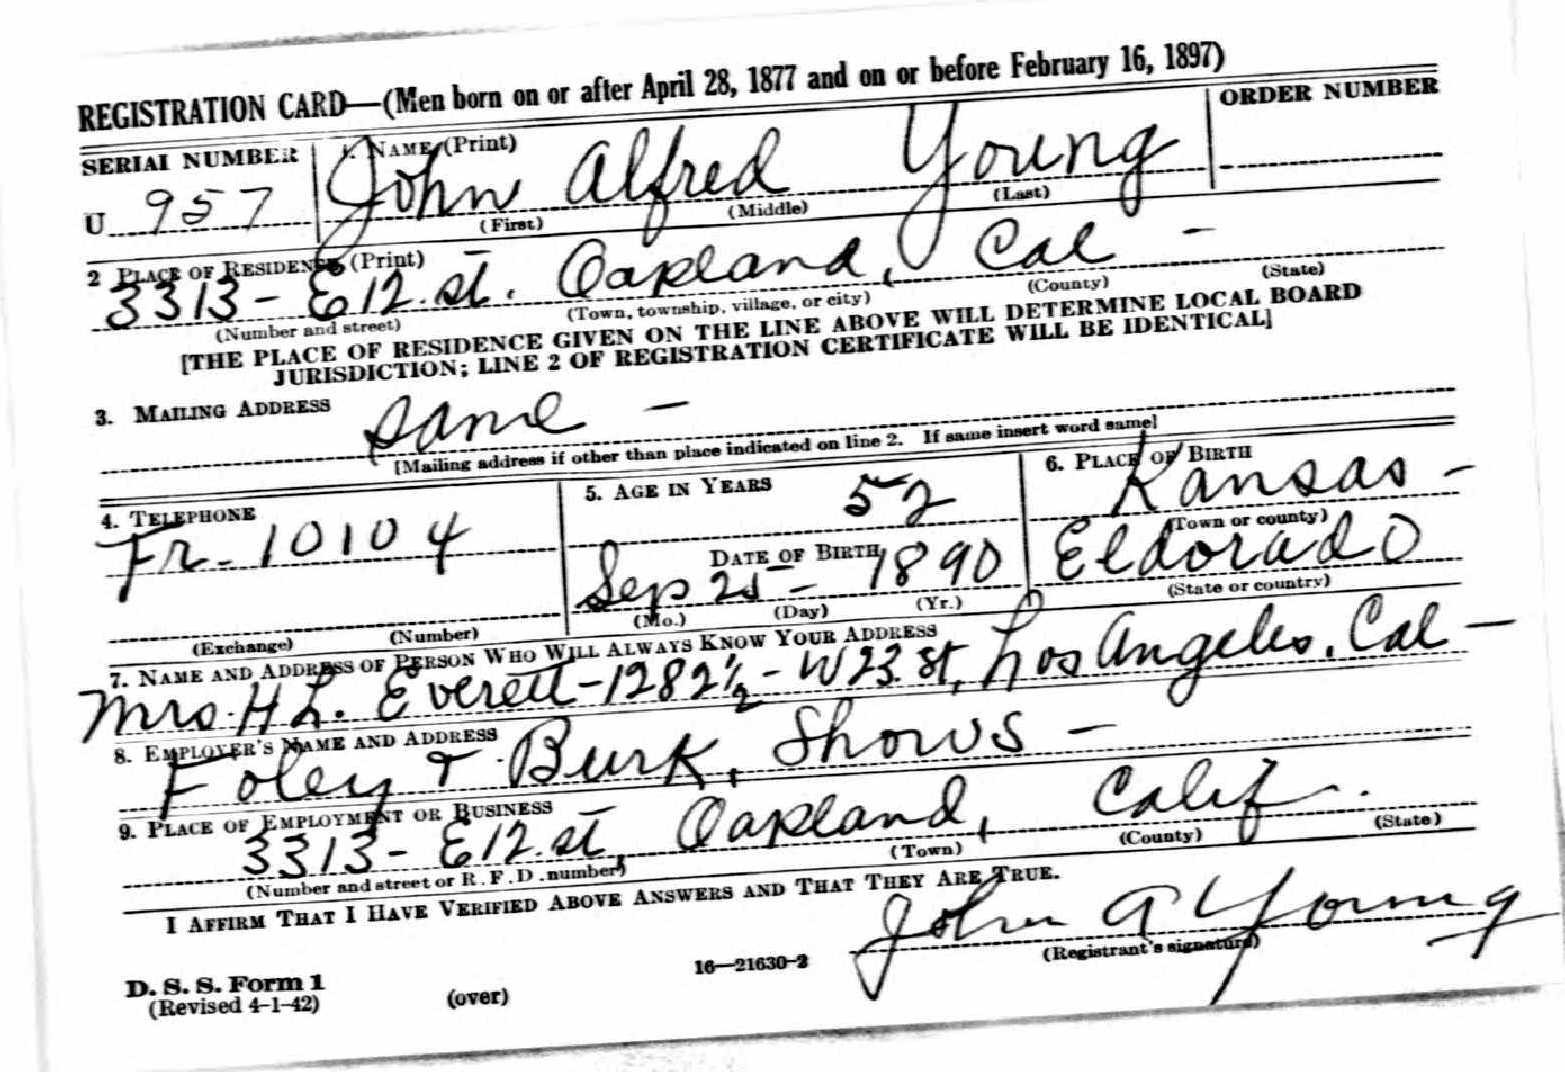 REGISTRATION CARD—(Men born on or after April 28, 1877 and on or before February 16, 1897)
SERIAL NUMBER
1. NAME (Print)
ORDER NUMBER
U 957
John Alfred Young
(First) (Middle) (Last)
2 PLACE OF RESIDENCE (Print)
3313 - E 12. st. Oakland, Cal -
(Number and street) (Town, township, village, or city) (County) (State)
[THE PLACE OF RESIDENCE GIVEN ON THE LINE ABOVE WILL DETERMINE LOCAL BOARD
JURISDICTION; LINE 2 OF REGISTRATION CERTIFICATE WILL BE IDENTICAL]
3. MAILING ADDRESS
Same -
[Mailing address if other than place indicated on line 2. If same insert word same]
4. TELEPHONE
Fr. 10104
(Exchange) (Number)
5. AGE IN YEARS
52
DATE OF BIRTH
Sep 25 - 1890
(Mo.) (Day) (Yr.)
6. PLACE OF BIRTH
Kansas -
(Town or county)
Eldorado
(State or country)
7. NAME AND ADDRESS OF PERSON WHO WILL ALWAYS KNOW YOUR ADDRESS
Mrs. H L. Everett - 1282½ - W 23 st, Los Angeles, Cal -
8. EMPLOYER'S NAME AND ADDRESS
Foley & Burk, Shows -
9. PLACE OF EMPLOYMENT OR BUSINESS
3313 - E 12. st, Oakland, Calif.
(Number and street or R. F. D. number) (Town) (County) (State)
I AFFIRM THAT I HAVE VERIFIED ABOVE ANSWERS AND THAT THEY ARE TRUE.
John A Young
(Registrant's signature)
D. S. S. Form 1
(Revised 4-1-42)
(over)
16—21630-2